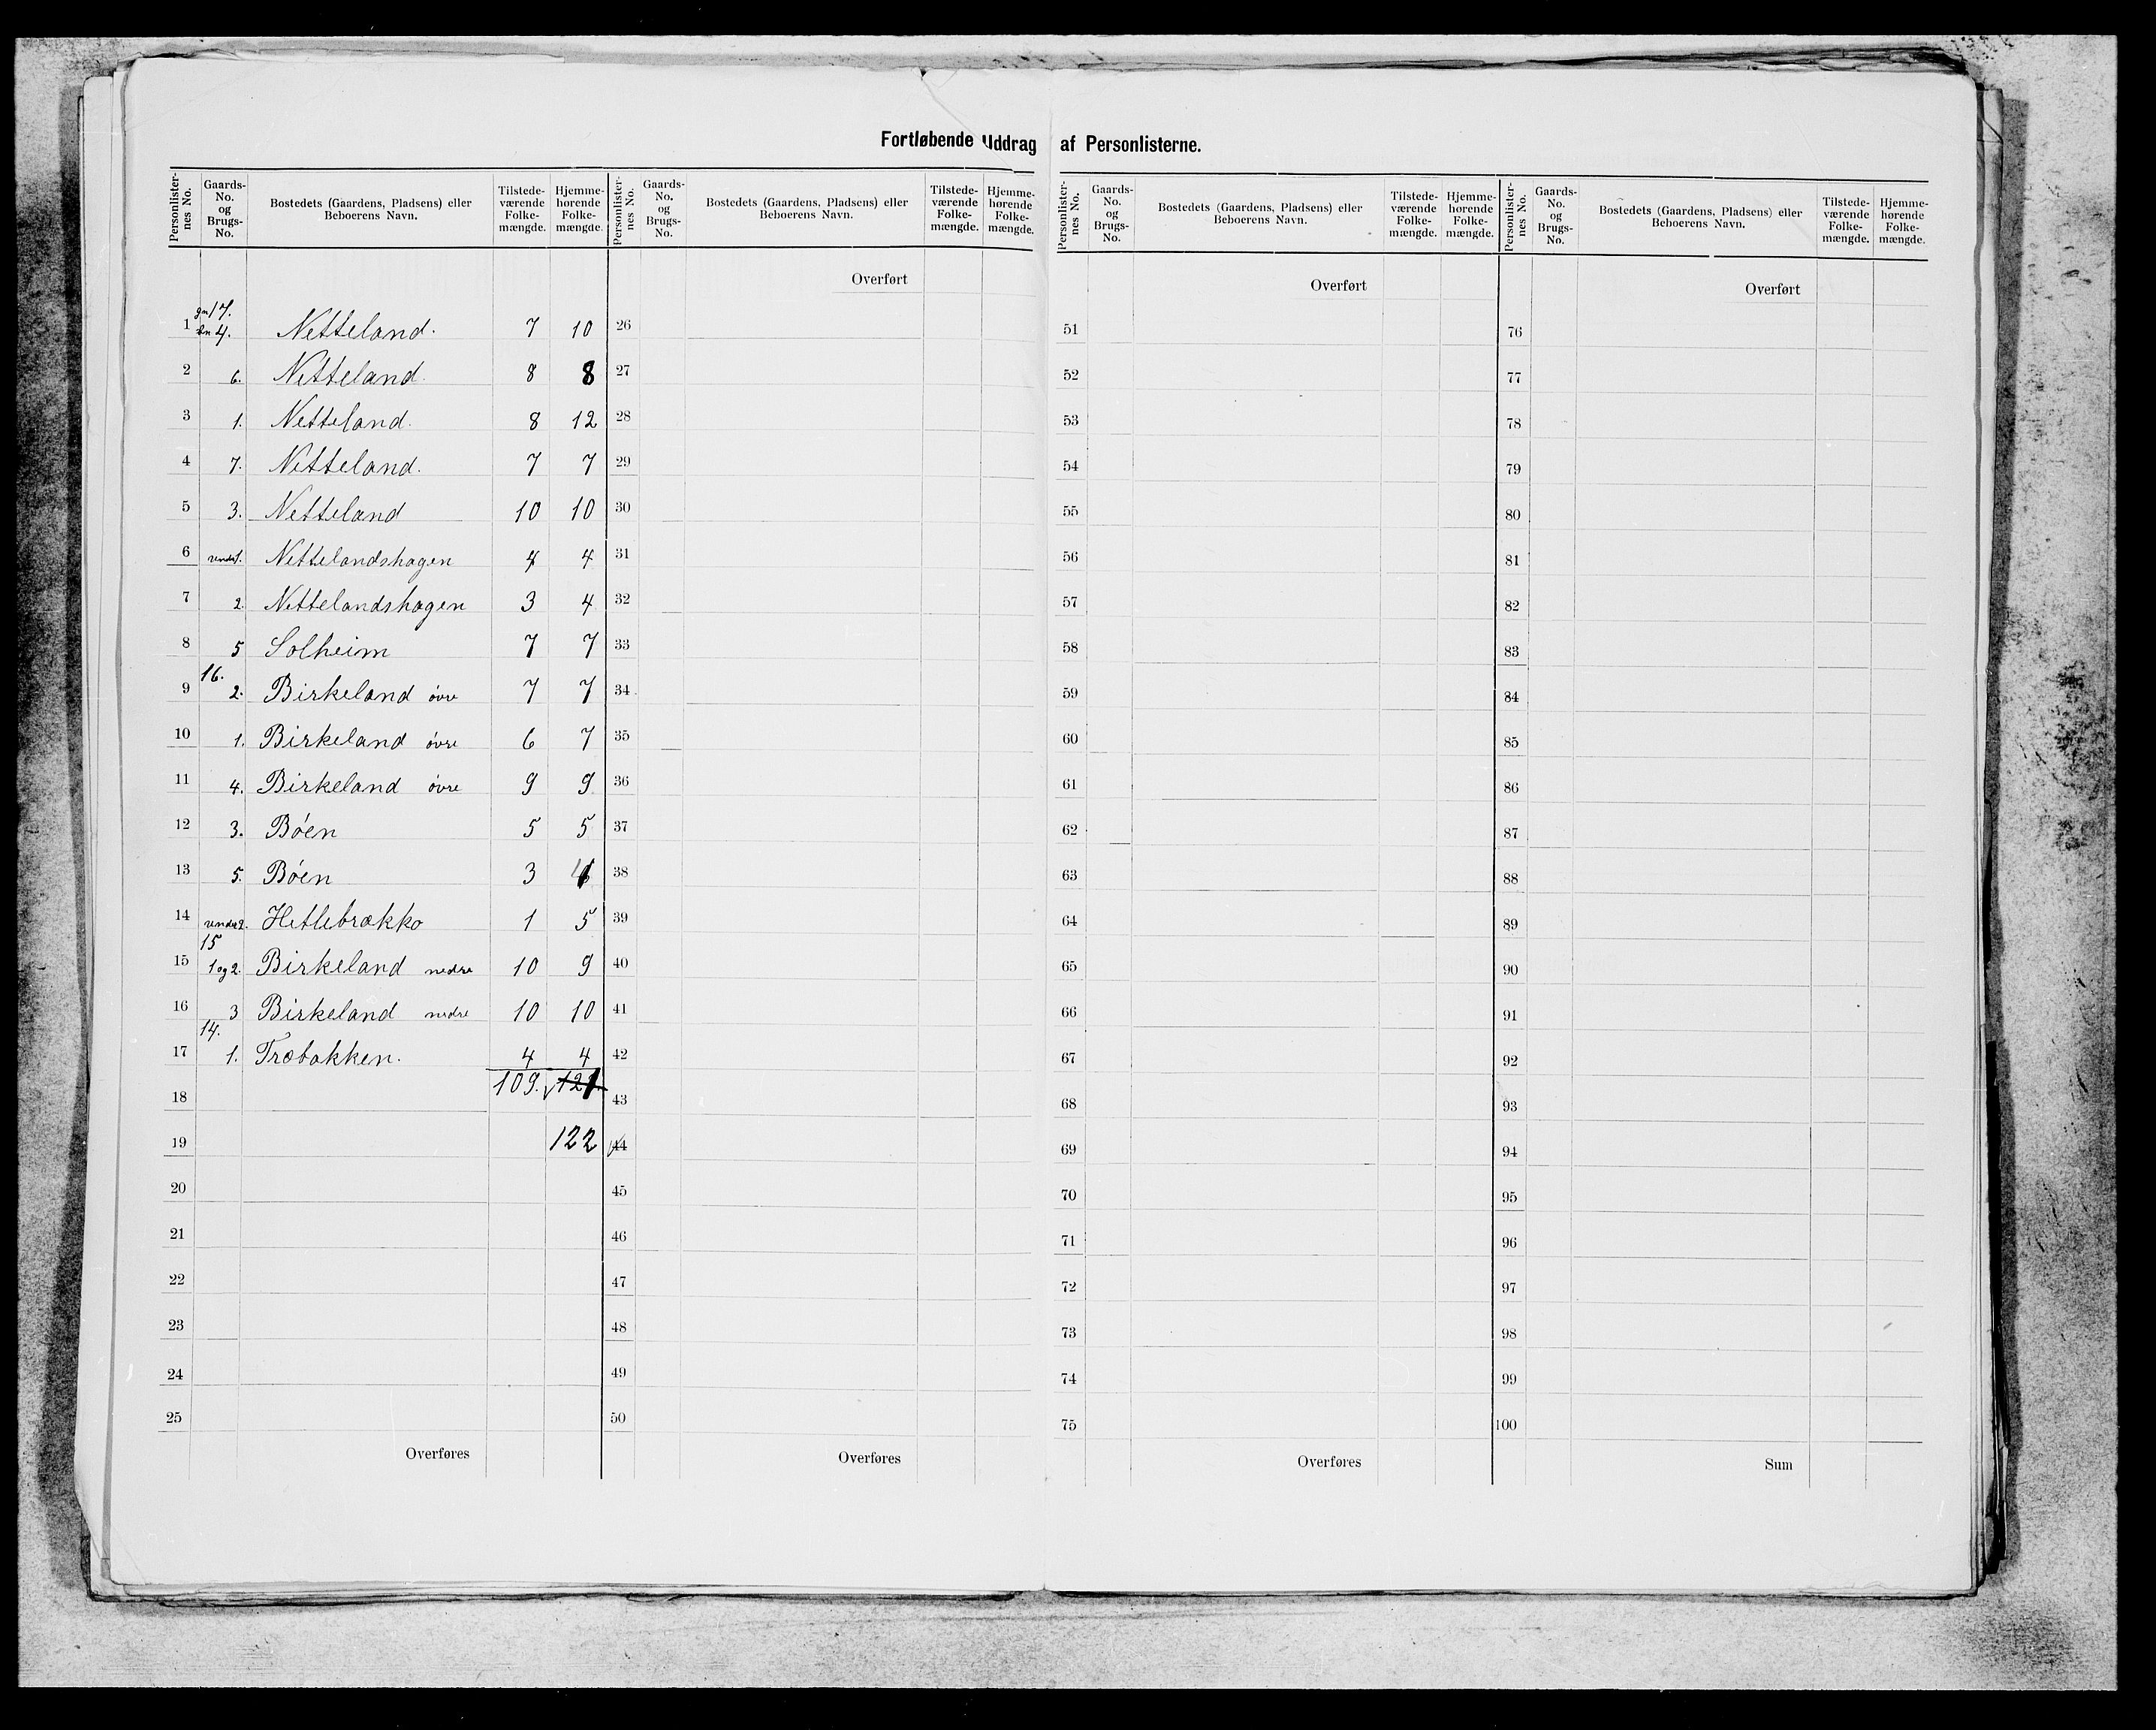 Fortløbende Uddrag af Personlisterne.
Personlister-nes No. Gaards-No. og Brugs-No. Bostedets (Gaardens, Pladsens) eller Beboerens Navn. Tilstede-værende Folke-mængde. Hjemme-hørende Folke-mængde. Personlister-nes No. Gaards-No. og Brugs-No. Bostedets (Gaardens, Pladsens) eller Beboerens Navn. Tilstede-værende Folke-mængde. Hjemme-hørende Folke-mængde. Personlister-nes No. Gaards-No. og Brugs-No. Bostedets (Gaardens, Pladsens) eller Beboerens Navn. Tilstede-værende Folke-mængde. Hjemme-hørende Folke-mængde. Personlister-nes No. Gaards-No. og Brugs-No. Bostedets (Gaardens, Pladsens) eller Beboerens Navn. Tilstede-værende Folke-mængde. Hjemme-hørende Folke-mængde.
Overført Overført Overført
gn 17.
1 bn 4. Netteland. 7 10 26 51 76
2 6. Netteland. 8 8 27 52 77
3 1. Netteland. 8 12 28 53 78
4 7. Netteland. 7 7 29 54 79
5 3. Netteland 10 10 30 55 80
6 1. Nettelandshagen 4 4 31 56 81
7 2. Nettelandshagen 3 4 32 57 82
8 5 Solheim 7 7 33 58 83
16.
9 2. Birkeland övre 7 7 34 59 84
10 1. Birkeland övre 6 7 35 60 85
11 4. Birkeland övre 9 9 36 61 86
12 3. Böen 5 5 37 62 87
13 5. Böen 3 4 38 63 88
14 2. Hetlebrækko 1 5 39 64 89
15
15 1 og 2. Birkeland nedre 10 9 40 65 90
16 3 Birkeland nedre 10 10 41 66 91
14.
17 1. Træbakken. 4 4 42 67 92
109. 121
18 43 68 93
19 122 44 69 94
20 45 70 95
21 46 71 96
22 47 72 97
23 48 73 98
24 49 74 99
25 50 75 100
Overføres Overføres Overføres Sum